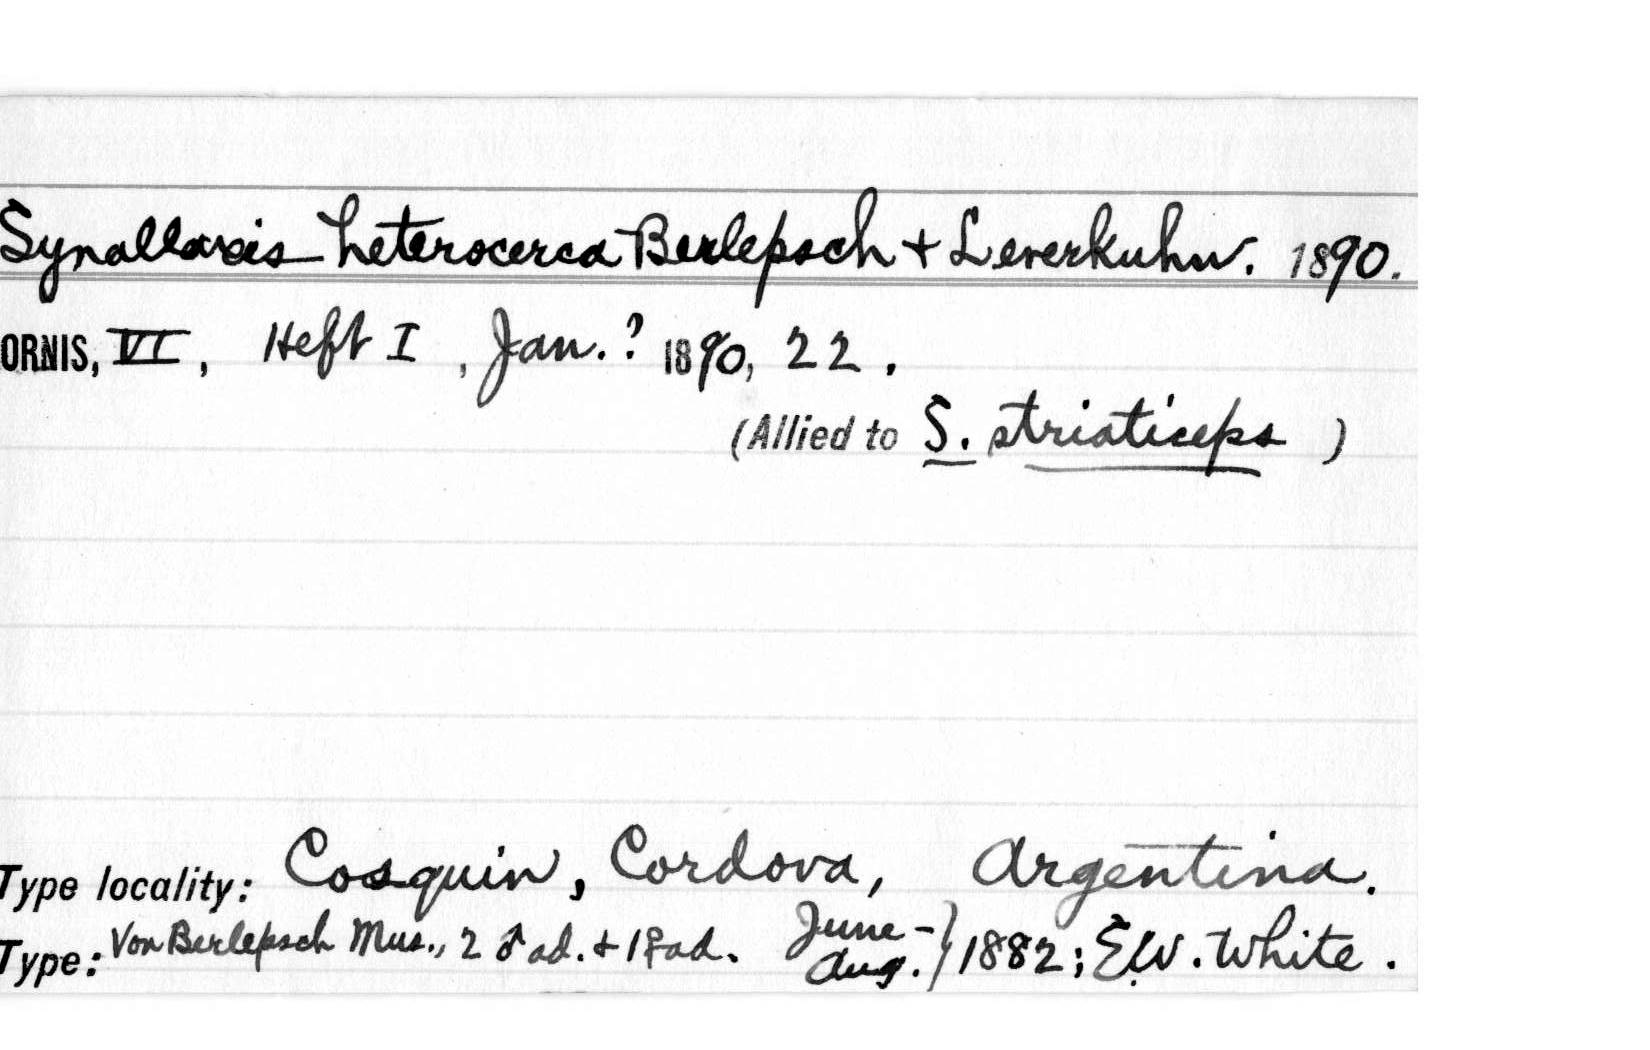 Synallaxis heterocerca Berlepsch + Leverkuhn. 1890.
ORNIS, VI, Heft I, Jan.? 1890, 22.
(Allied to S. striaticeps )
Type locality: Cosquin, Cordova, Argentina.
Type: Von Berlepsch Mus., 2 ♂ ad. + 1 ♀ ad. June - Aug. } 1882; E.W. White.